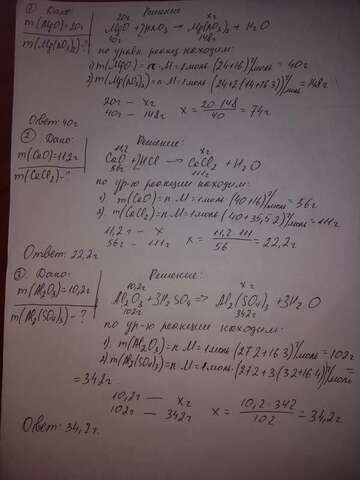 ① Дано:
m(MgO)=20г
m(Mg(NO₃)₂)-?
Решение
20г xг
MgO + 2HNO₃ → Mg(NO₃)₂ + H₂O
40г 148г
по уравн реакц находим:
1) m(MgO) = n·M = 1моль (24+16)г/моль = 40г
2) m(Mg(NO₃)₂) = n·M = 1моль (24+2(14+16·3)г/моль = 148г
20г — xг
40г — 148г x = 20·148/40 = 74г
Ответ: 40г
② Дано:
m(CaO)=11,2г
m(CaCl₂)-?
Решение:
11,2 xг
CaO + 2HCl → CaCl₂ + H₂O
56г 111г
по ур-ю реакции находим:
1) m(CaO) = n·M = 1моль (40+16)г/моль = 56г
2) m(CaCl₂) = n·M = 1моль (40+35,5·2)г/моль = 111г
11,2г — x
56г — 111г x = 11,2·111/56 = 22,2г
Ответ: 22,2г
③ Дано:
m(Al₂O₃)=10,2г
m(Al₂(SO₄)₃)-?
Решение:
10,2г xг
Al₂O₃ + 3H₂SO₄ => Al₂(SO₄)₃ + 3H₂O
102г 342г
по ур-ю реакции находим:
1) m(Al₂O₃) = n·M = 1моль·(27·2+16·3)г/моль = 102г
2) m(Al₂(SO₄)₃) = n·M = 1моль·(27·2+3(32+16·4)г/моль =
= 342г
10,2г — xг
102г — 342г x = 10,2·342/102 = 34,2г
Ответ: 34,2г.